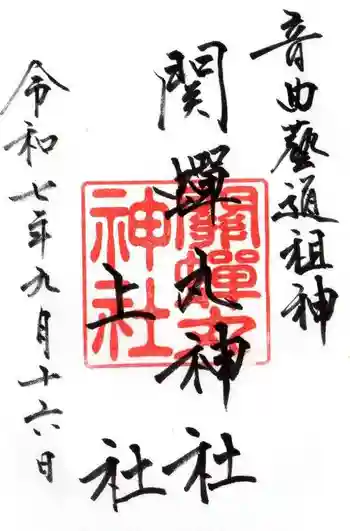 音曲藝道祖神
関蟬丸神社
上社
令和七年九月十六日
關蟬丸
神社